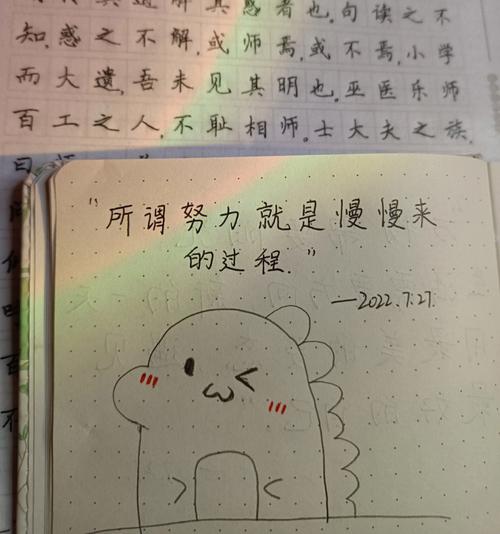 其惑者也。句读之不
知,惑之不解,或师焉,或不焉,小学
而大遗,吾未见其明也。巫医乐师
百工之人,不耻相师。士大夫之族,
曰
"所谓努力就是慢慢来
的过程."
—2022.7.27.